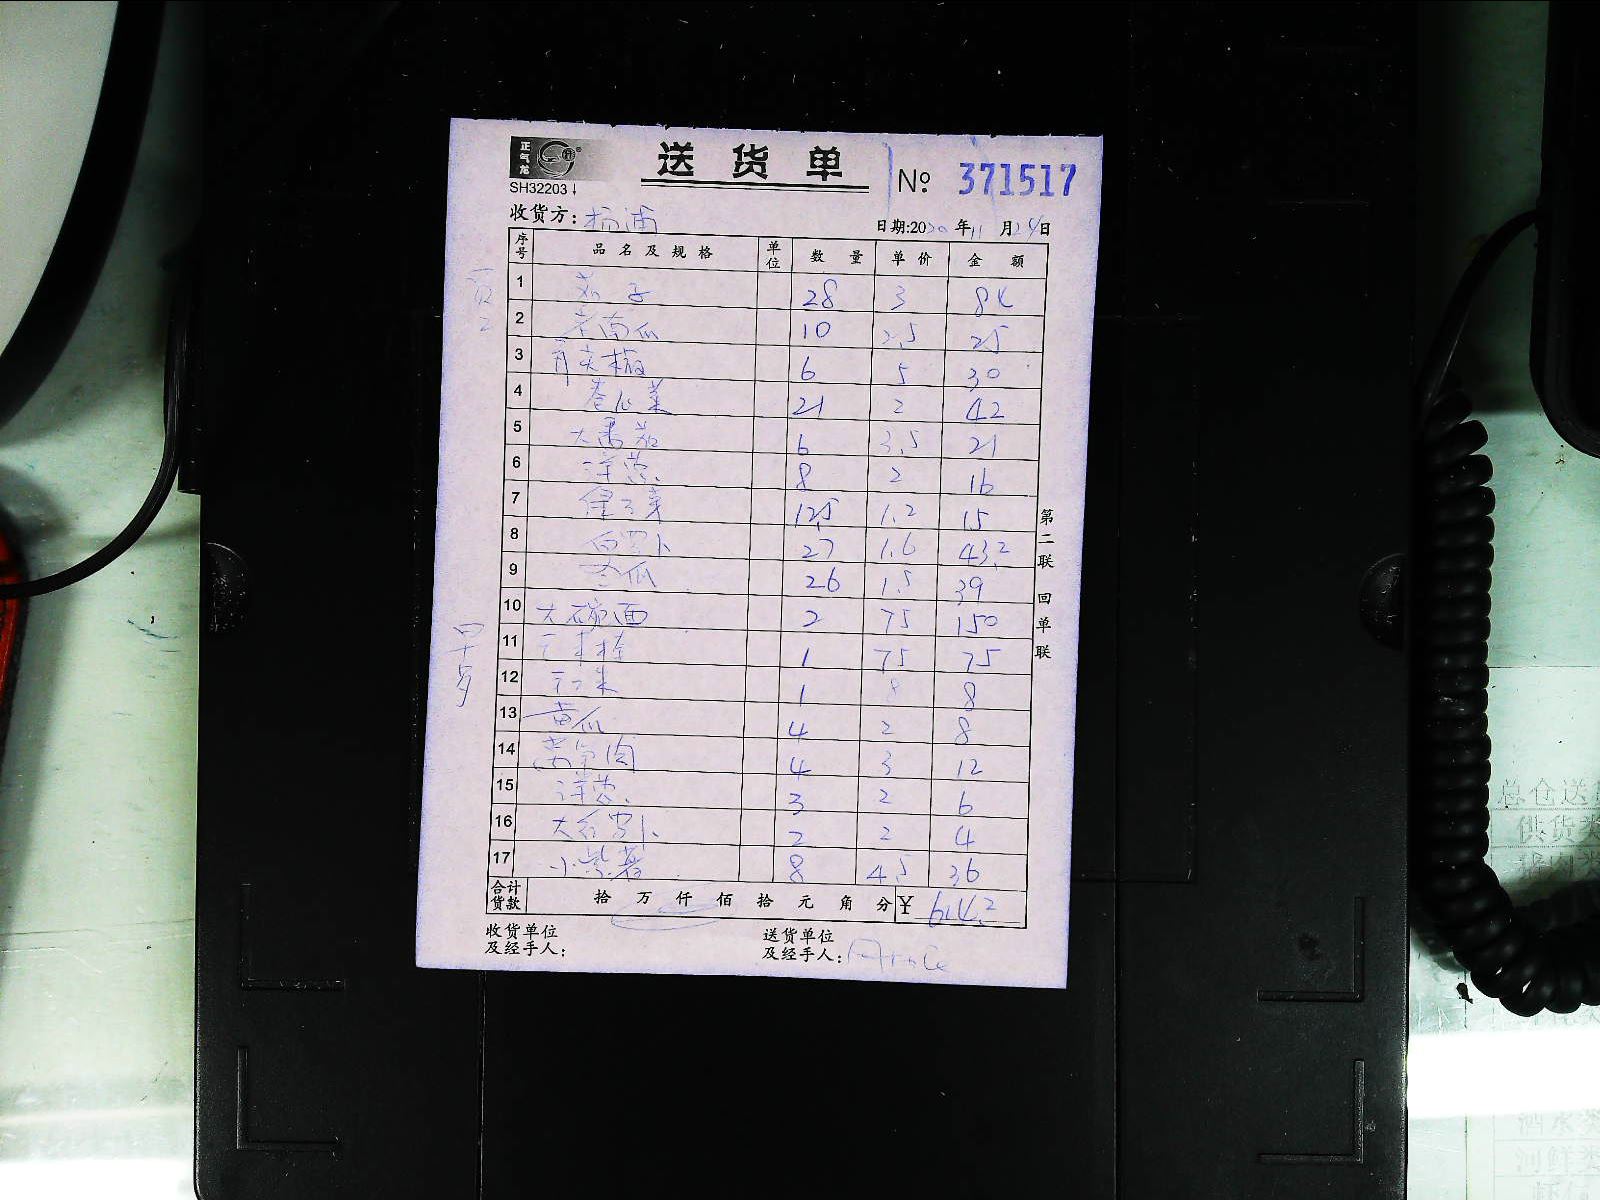 正气龙
送 货 单
SH32203
№ 371517
收货方: 杨浦
日期:2020年11月24日
序号 品名及规格 单位 数量 单价 金额
1 茄子 28 3 84
2 老南瓜 10 2.5 25
3 青尖椒 6 5 30
4 卷心菜 21 2 42
5 大番茄 6 3.5 21
6 洋葱 8 2 16
7 12.5 1.2 15
8 白罗卜 27 1.6 43.2
9 冬瓜 26 1.5 39
10 大碗面 2 75 150
11 1 75 75
12 1 8 8
13 黄瓜 4 2 8
14 4 3 12
15 洋葱 3 2 6
16 大红罗卜 2 2 4
17 小紫薯 8 4.5 36
合计货款 拾 万 仟 佰 拾 元 角 分 ¥ 614.2
收货单位及经手人:
送货单位及经手人:
第二联 回单联
四十号
总仓送
供货类
酒水类
河鲜类